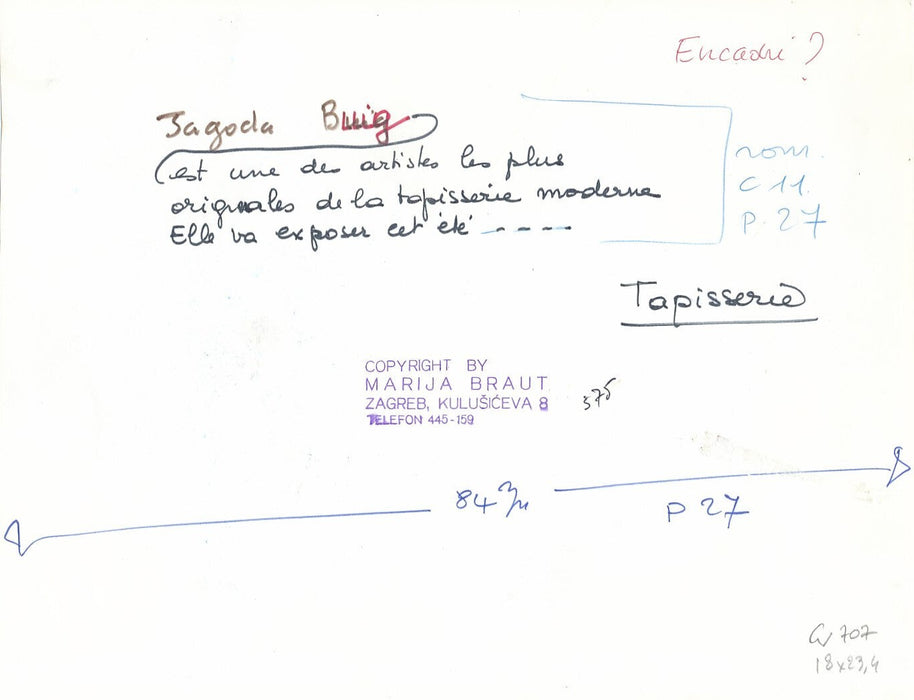 Encadré ?
Jagoda Buig
est une des artistes les plus
originales de la tapisserie moderne
Elle va exposer cet été - - - -
rom.
C 11.
P. 27
Tapisserie
COPYRIGHT BY
MARIJA BRAUT
ZAGREB, KULUŠIĆEVA 8
TELEFON 445-159
375
84
P 27
707
18x23,4